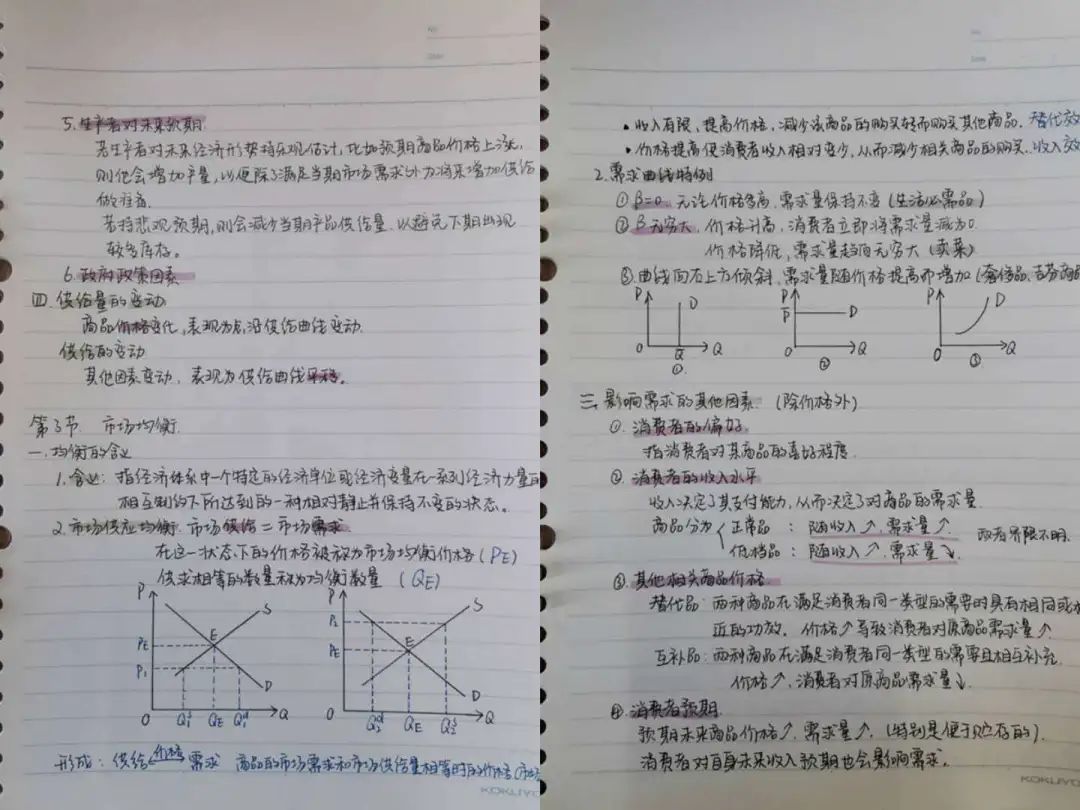 5. 生产者对未来预期
若生产者对未来经济形势持乐观估计,比如预期商品价格上涨,
则他会增加产量,以便除了满足当期市场需求外为将来增加供给
做准备
若持悲观预期,则会减少当期产品供给量,以避免下期出现
较多库存。
6. 政府政策因素
四. 供给量的变动
商品价格变化,表现为点沿供给曲线变动.
供给的变动
其他因素变动,表现为供给曲线平移。
第3节. 市场均衡.
一. 均衡的含义
1. 含义: 指经济体系中一个特定的经济单位或经济变量在一系列经济力量的
相互制约下所达到的一种相对静止并保持不变的状态。
2. 市场供应均衡: 市场供给=市场需求.
在这一状态下的价格被称为市场均衡价格(PE)
供求相等的数量称为均衡数量 (QE)
P S PE P1 E D O Q1s QE Q1d Q
P S P2 PE E D O Q2d QE Q2s Q
形成: 供给 价格 需求 商品的市场需求和市场供给量相等时的价格
KOKUYO
• 收入有限,提高价格,减少该商品的购买转而购买其他商品. 替代效
• 价格提高使消费者收入相对变少,从而减少相关商品的购买. 收入效
2. 需求曲线特例
① β=0. 无论价格多高,需求量保持不变(生活必需品)
② β无穷大,价格升高,消费者立即将需求量减为0.
价格降低,需求量趋向无穷大(卖菜)
③ 曲线向右上方倾斜,需求量随价格提高而增加(奢侈品、吉芬商品
P D O Q Q ①
P P D O Q ②
P D O Q ③
三. 影响需求的其他因素. (除价格外)
①. 消费者的偏好.
指消费者对某商品的喜好程度.
②. 消费者的收入水平
收入决定了其支付能力,从而决定了对商品的需求量.
商品分为 正常品 : 随收入↗,需求量↗ 两者界限不明.
低档品 : 随收入↗,需求量↘
③. 其他相关商品价格.
替代品: 两种商品在满足消费者同一类型的需要时具有相同或相
近的功效. 价格↗导致消费者对原商品需求量↗.
互补品: 两种商品在满足消费者同一类型的需要且相互补充.
价格↗,消费者对原商品需求量↘.
④. 消费者预期.
预期未来商品价格↗,需求量↗. (特别是便于贮存的).
消费者对自身未来收入预期也会影响需求.
KOKUYO